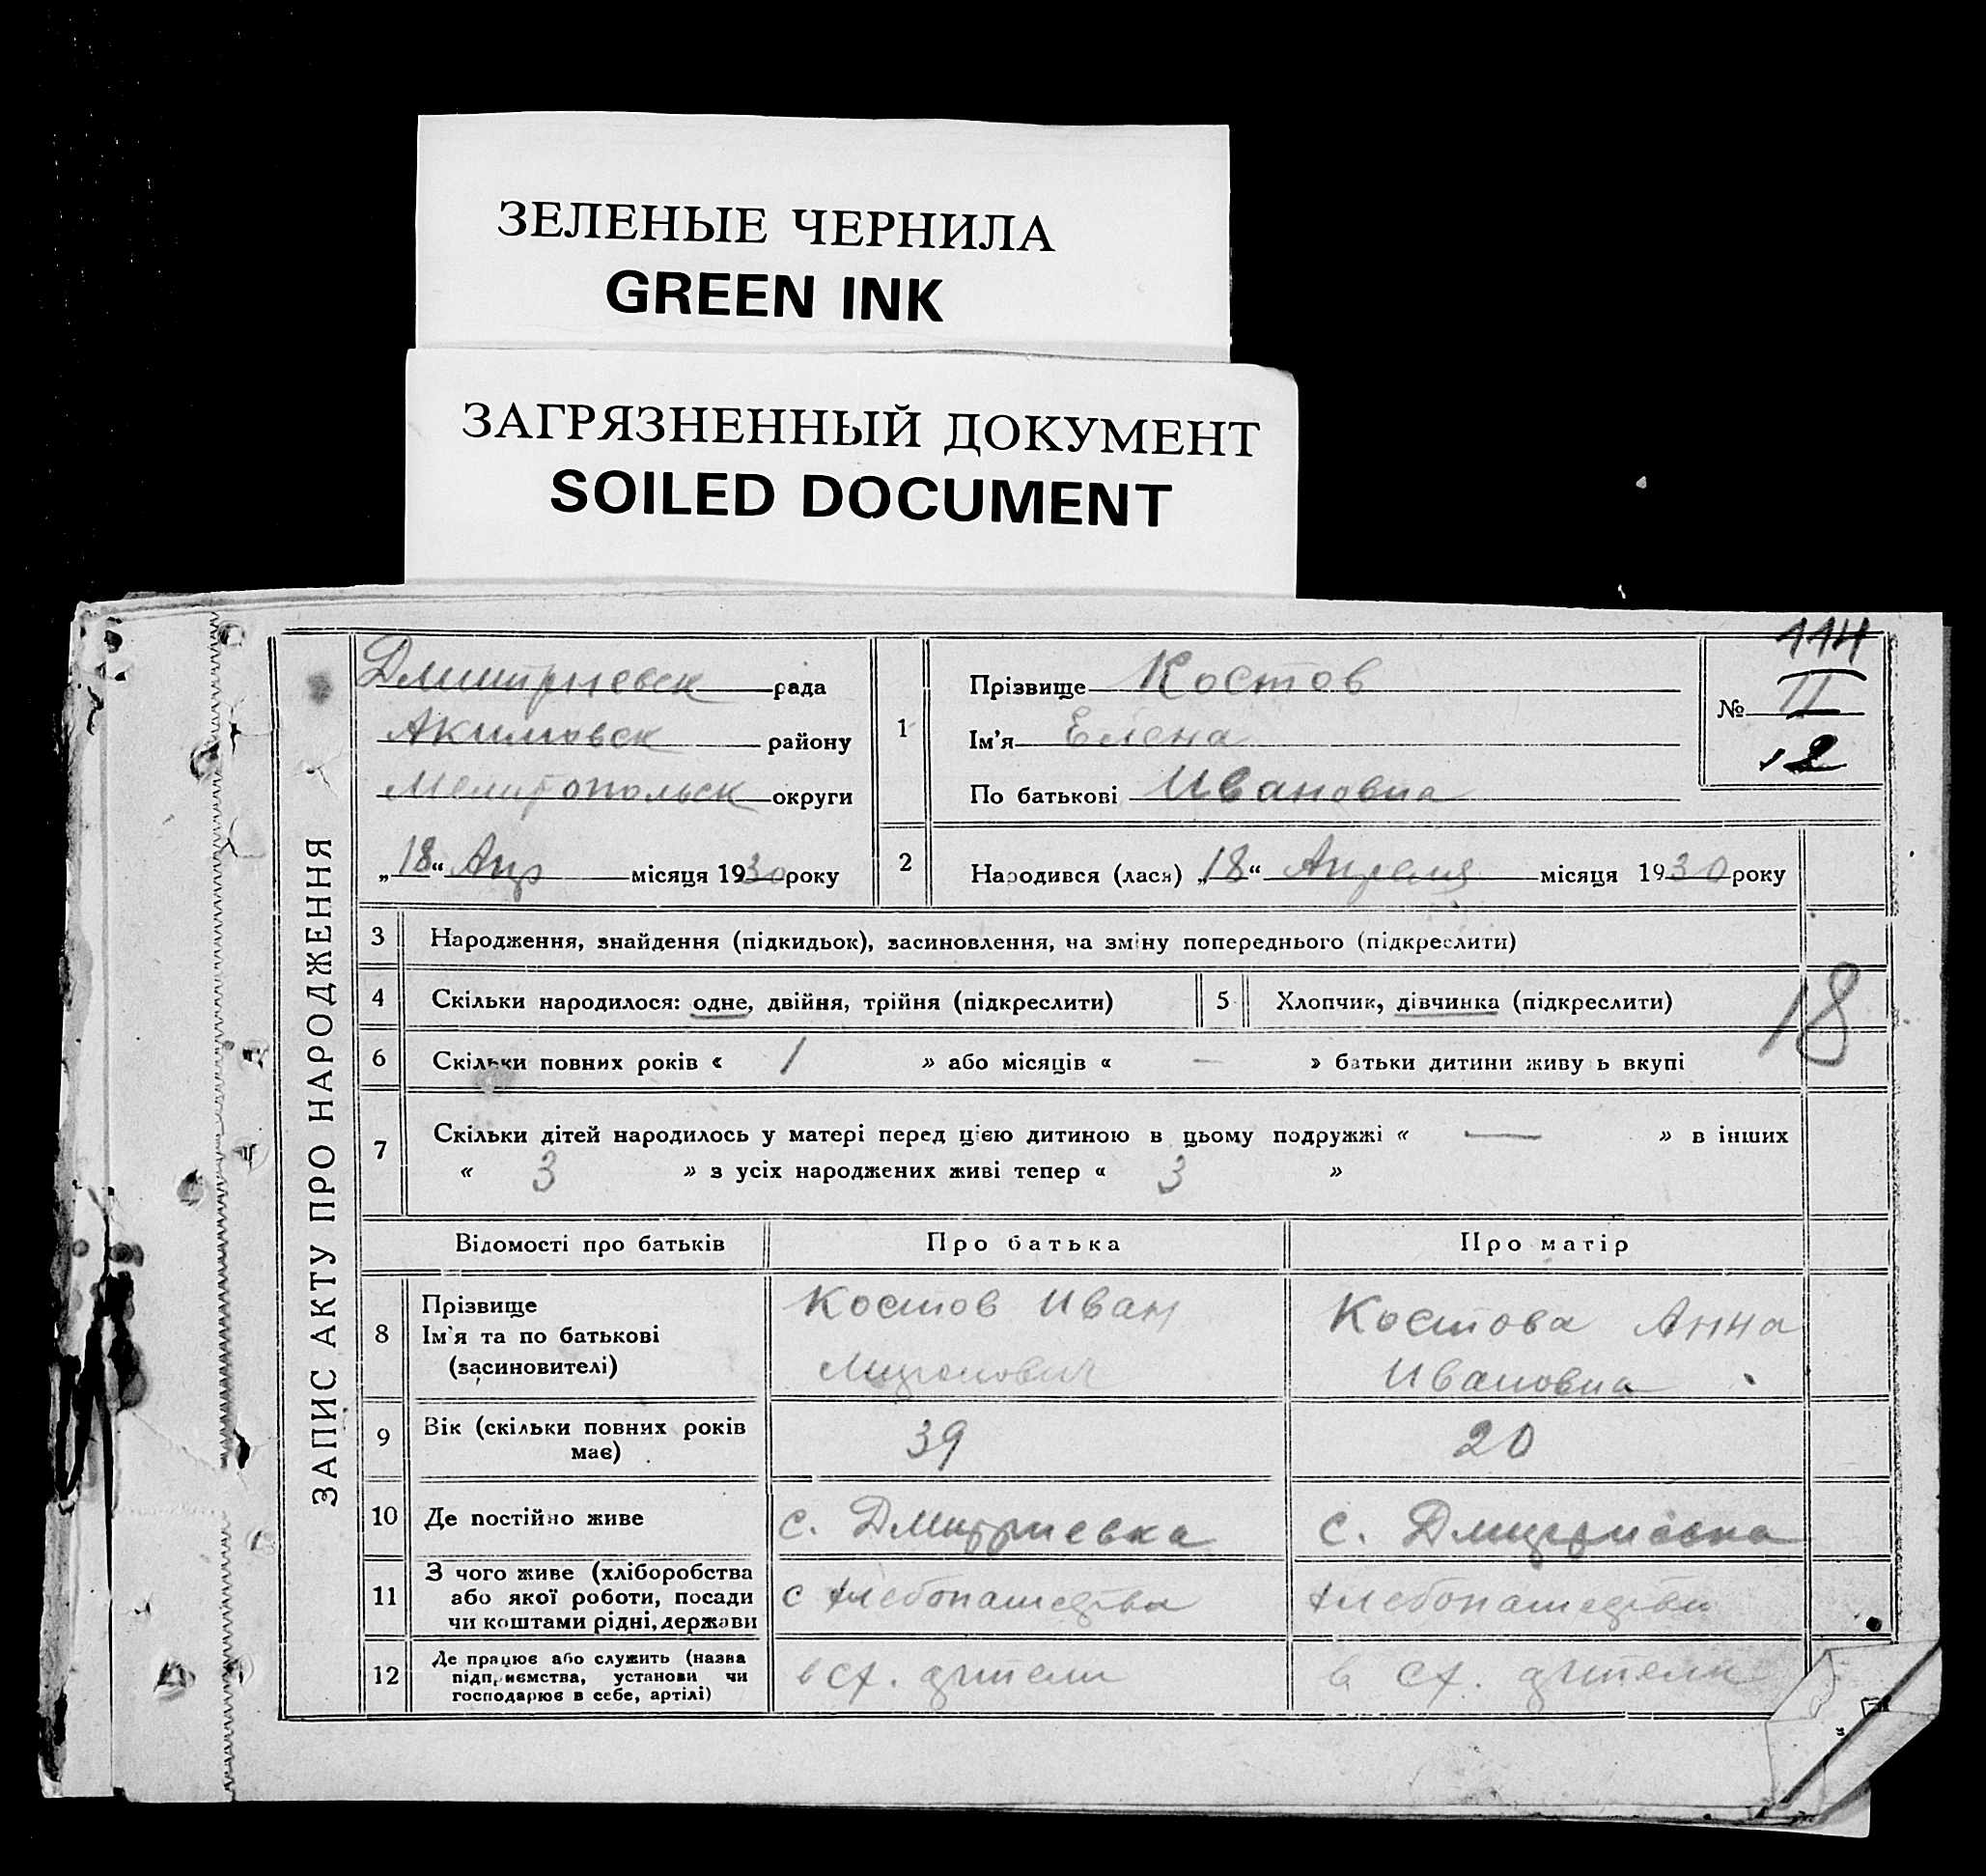 ЗЕЛЕНЫЕ ЧЕРНИЛА
GREEN INK
ЗАГРЯЗНЕННЫЙ ДОКУМЕНТ
SOILED DOCUMENT
ЗАПИС АКТУ ПРО НАРОДЖЕННЯ
Дмитриевск рада
Акимовск району
Мелитопольск округи
„18“ Апр місяця 1930 року
1
Прізвище Костов
Ім'я Елена
По батькові Ивановна
114
№ 11
12
2
Народився (лася) „18“ Апреля місяця 1930 року
3 Народження, знайдення (підкидьок), засиновлення, на зміну попереднього (підкреслити)
4 Скільки народилося: одне, двійня, трійня (підкреслити)
5 Хлопчик, дівчинка (підкреслити)
18
6 Скільки повних років « 1 » або місяців « — » батьки дитини живу ь вкупі
7 Скільки дітей народилось у матері перед цією дитиною в цьому подружжі « — » в інших
« 3 » з усіх народжених живі тепер « 3 »
Відомості про батьків Про батька Про матір
8 Прізвище
Ім'я та по батькові
(засиновителі)
Костов Иван
Костова Анна
Ивановна
9 Вік (скільки повних років
має)
39
20
10 Де постійно живе
с. Дмитриевка
с. Дмитриевка
11 З чого живе (хліборобства
або якої роботи, посади
чи коштами рідні, держави
с хлебопашества
хлебопашества
12 Де працює або служить (назва
підприємства, установи чи
господарює в себе, артілі)
в сх. артели
в сх. артели